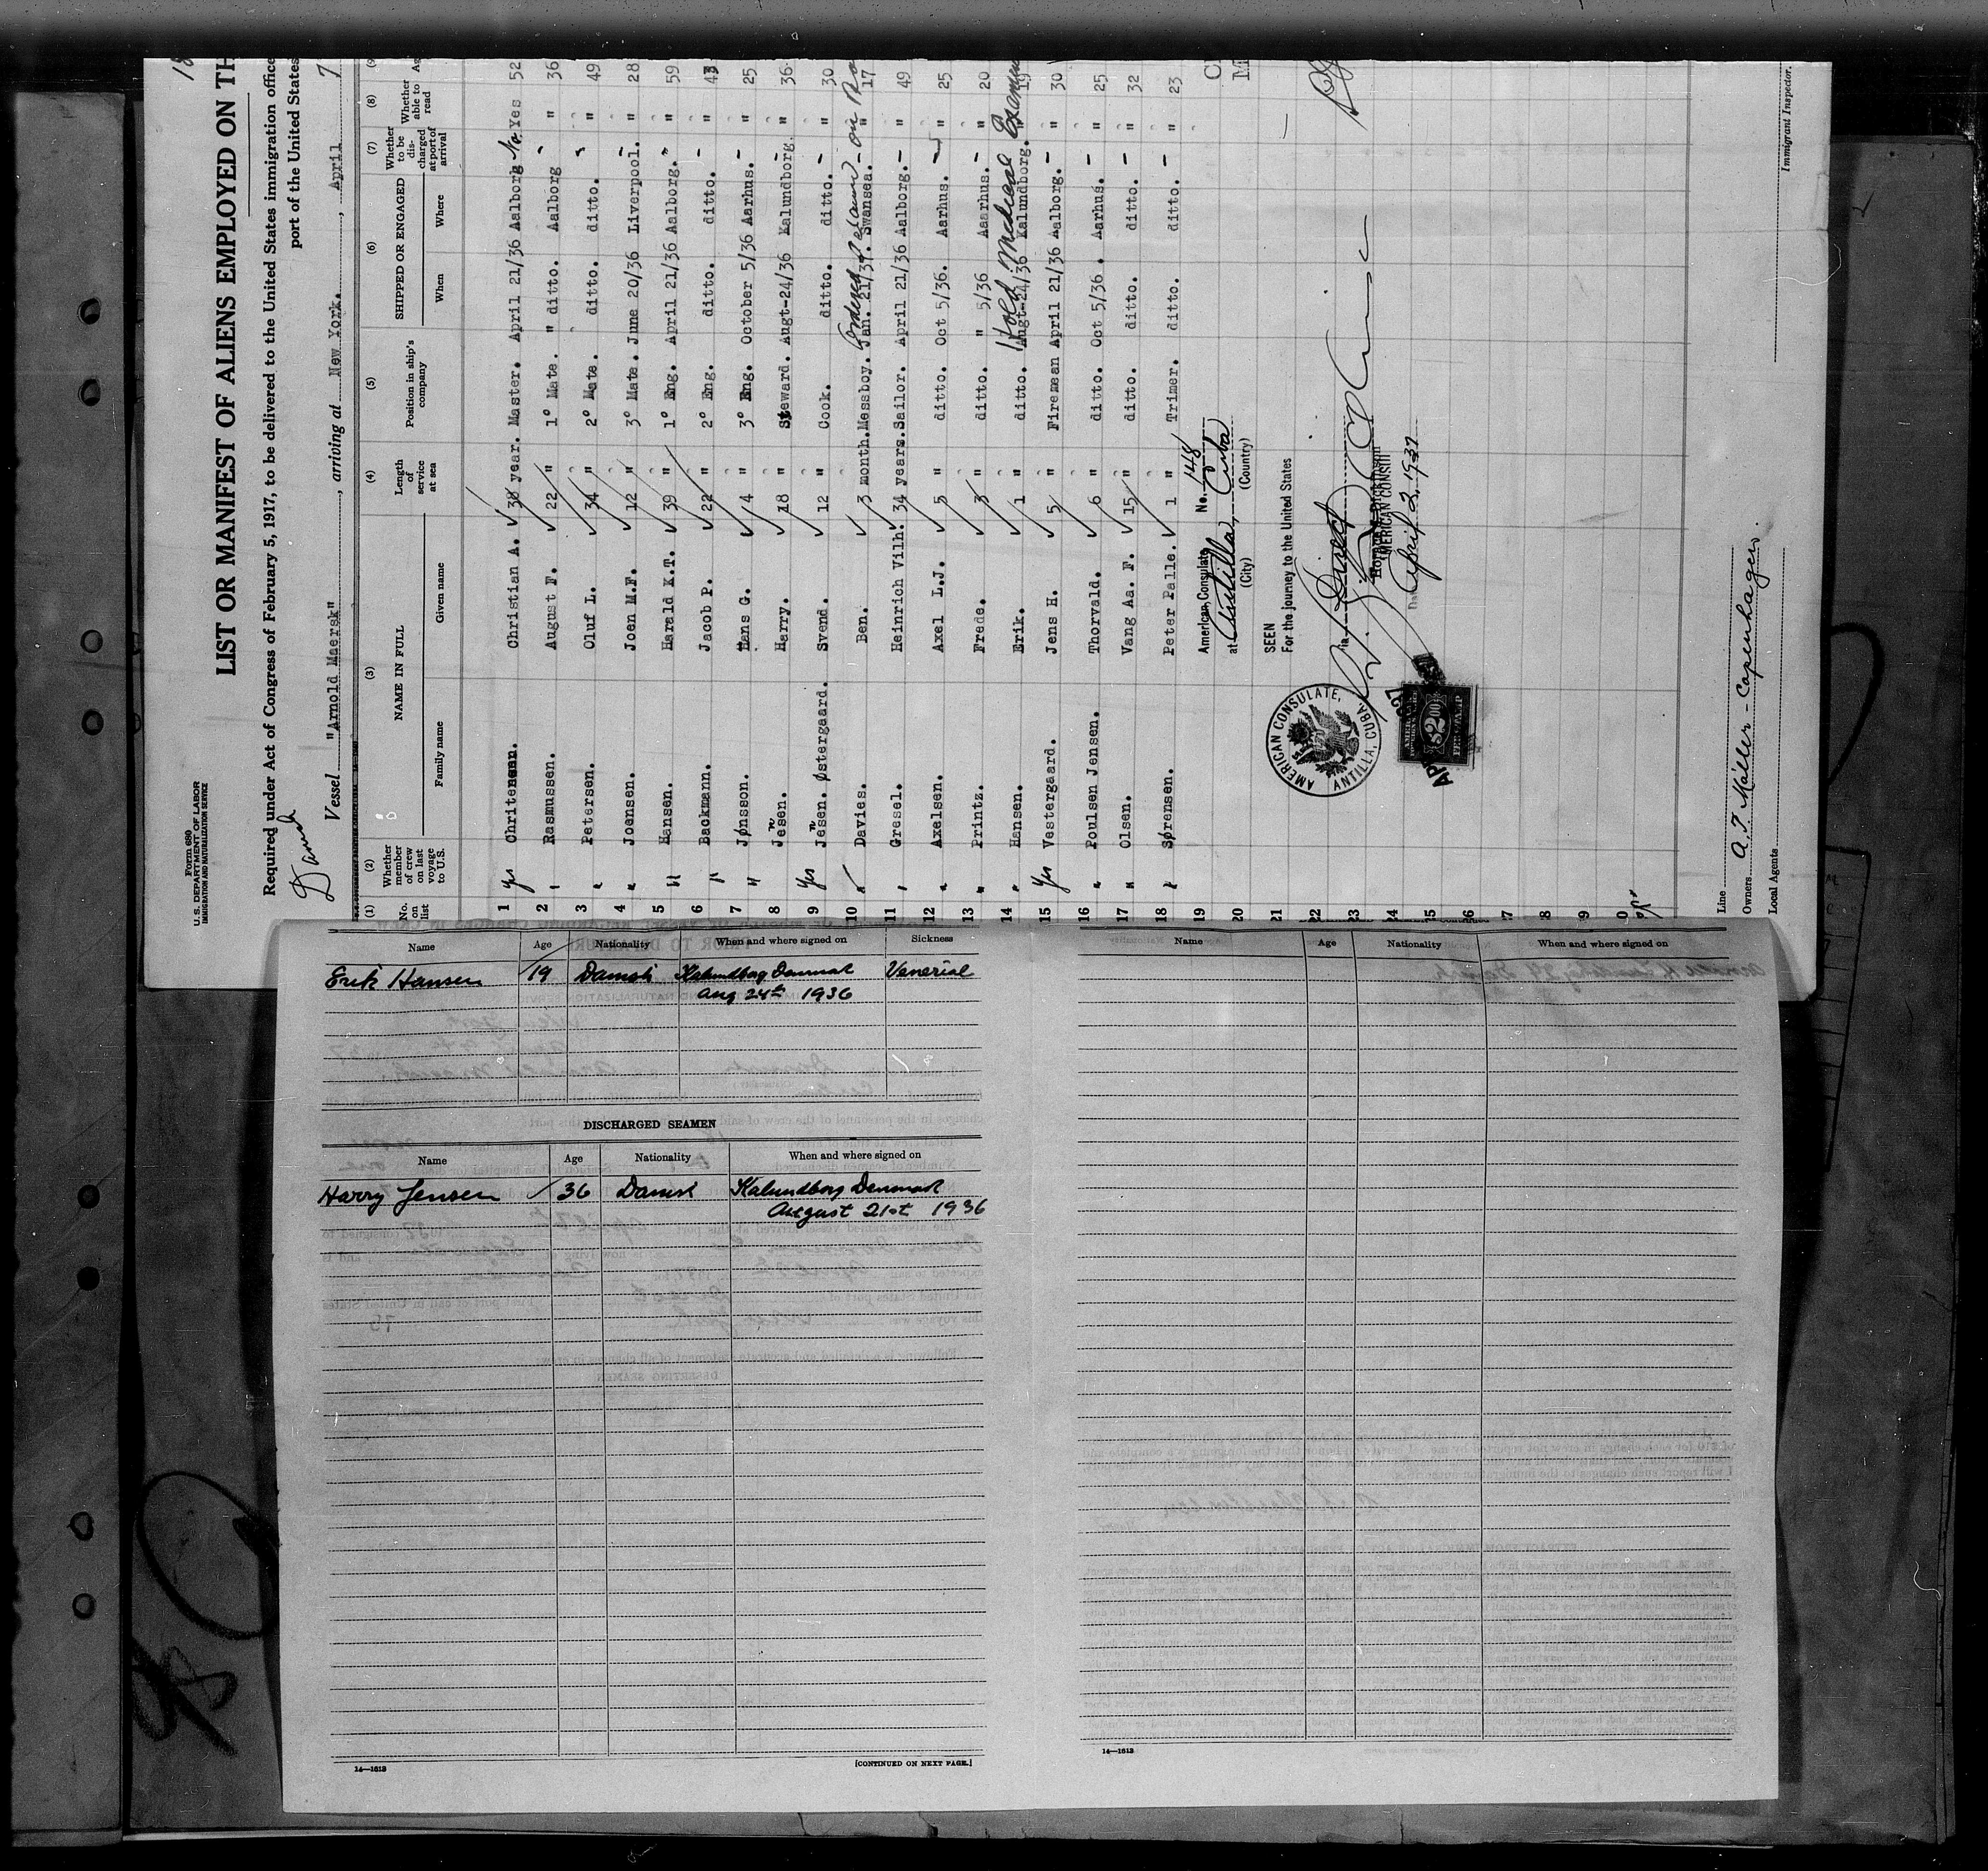 18
Form 680
U. S. DEPARTMENT OF LABOR
IMMIGRATION AND NATURALIZATION SERVICE
LIST OR MANIFEST OF ALIENS EMPLOYED ON TH
Required under Act of Congress of February 5, 1917, to be delivered to the United States immigration office
port of the United States
Danish
Vessel "Arnold Maersk", arriving at New York., April 7
(1) No. on list (2) Whether member of crew on last voyage to U.S. (3) NAME IN FULL Family name Given name (4) Length of service at sea (5) Position in ship's company (6) SHIPPED OR ENGAGED When Where (7) Whether to be discharged at port of arrival (8) Whether able to read (9 Ag
1 yes Christensen. Christian A. 38 year. Master. April 21/36 Aalborg No. Yes 52
2 " Rasmussen. August F. 22 " 1° Mate. " ditto. Aalborg - " 36
3 " Petersen. Oluf L. 34 " 2° Mate. ditto. ditto. " 49
4 " Joensen. Joen M.F. 12 " 3° Mate. June 20/36 Liverpool. - " 28
5 " Hansen. Harald K.T. 39 " 1° Eng. April 21/36 Aalborg. " " 59
6 " Backmann. Jacob P. 22 " 2° Eng. ditto. ditto. - " 43
7 " Jønsson. Hans G. 4 " 3° Eng. October 5/36 Aarhus. - " 25
8 Jensen. Harry. 18 " Steward. Augt-24/36 Kalundborg. - " 36
9 yes Jensen. Østergaard. Svend. 12 " Cook. ditto. ditto. - " 30
10 " Davies. Ben. 3 month. Messboy. Jan. 21/37. Swansea. - " 17
11 " Gressel. Heinrich Vilh. 34 years. Sailor. April 21/36 Aalborg. - " 49
12 " Axelsen. Axel L.J. 5 " ditto. Oct 5/36. Aarhus. - " 25
13 " Printz. Frede. 3 " ditto. " 5/36 Aaarhus. - " 20
Hold Medical Examin
14 " Hansen. Erik. 1 " ditto. Augt-24/36 Kalundborg. " 19
15 yes Vestergaard. Jens H. 5 " Firemean April 21/36 Aalborg. - " 30
16 " Poulsen Jensen. Thorvald. 6 " ditto. Oct 5/36. Aarhus. - " 25
17 " Olsen. Vang Aa. F. 15 " ditto. ditto. ditto. - " 32
18 " Sørensen. Peter Palle. 1 " Trimer. ditto. ditto. - " 23
19
20
21
22
23
24
25
26
7
8
9
0
American Consulate No. 148
at Antilla, Cuba
(City) (Country)
SEEN
For the journey to the United States
Via Direct
AMERICAN CONSUL
Date April 2, 1937
AMERICAN CONSULATE, ANTILLA, CUBA.
$2.00
FEE STAMP
Line
Owners A.P. Möller - Copenhagen.
Local Agents
Immigrant Inspector.
Name Age Nationality When and where signed on Sickness
Erik Hansen 19 Danish Kalundborg Denmark Venerial
Aug 24th 1936
DISCHARGED SEAMEN
Name Age Nationality When and where signed on
Harry Jensen 36 Danish Kalundborg Denmark
August 21st 1936
14—1613 [CONTINUED ON NEXT PAGE.]
Name Age Nationality When and where signed on
14—1613